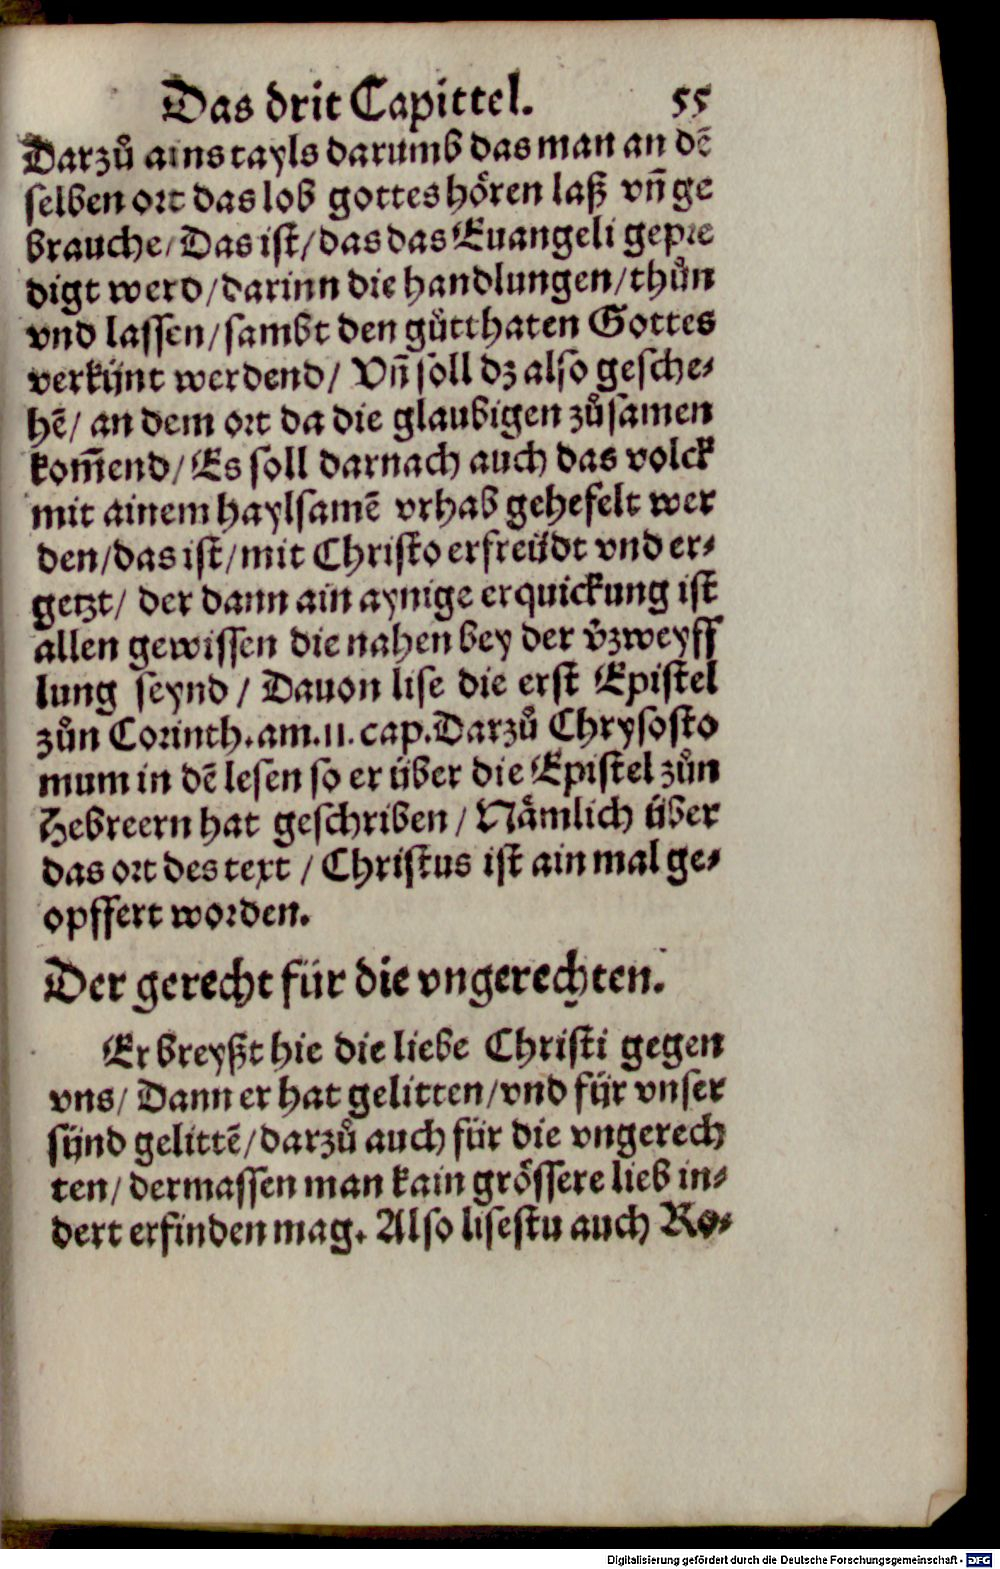 Das drit Capittel. 55
Darzuͦ ains tayls darumb das man an dē
selben ort das lob gottes hoͤren laß vn̄ ge
brauche/ Das ist/ das das Euangeli gepre
digt werd/ darinn die handlungen/ thuͦn
vnd lassen/ sambt den guͦtthaten Gottes
verkünt werdend/ Vn̄ soll dz also gesche-
hē/ an dem ort da die glaubigen zuͦsamen
kom̄end/ Es soll darnach auch das volck
mit ainem haylsamē vrhab gehefelt wer
den/ das ist/ mit Christo erfreüdt vnd er-
getzt/ der dann ain aynige erquickung ist
allen gewissen die nahen bey der v̄zweyff
lung seynd / Dauon lise die erst Epistel
zuͦn Corinth. am. 11. cap. Darzuͦ Chrysosto
mum in dē lesen so er über die Epistel zuͦn
Hebreern hat geschriben / Naͤmlich über
das ort des text / Christus ist ain mal ge-
opffert worden.
Der gerecht für die vngerechten.
Er breyßt hie die liebe Christi gegen
vns/ Dann er hat gelitten/ vnd für vnser
sünd gelittē/ darzuͦ auch für die vngerech
ten/ dermassen man kain groͤssere lieb in-
dert erfinden mag. Also lisestu auch Ro-
Digitalisierung gefördert durch die Deutsche Forschungsgemeinschaft - DFG